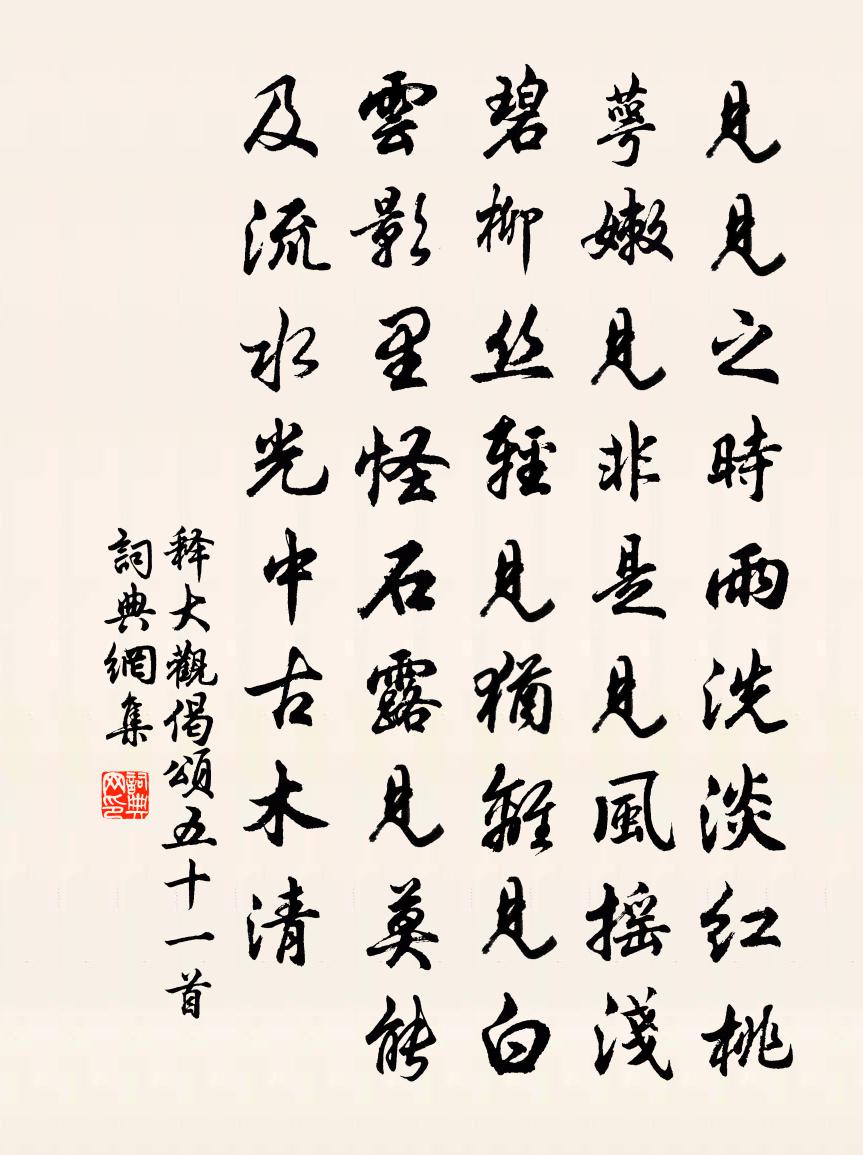 見見之時雨洗淡紅桃
萼嫩見非是見風搖淺
碧柳丝輕見猶離見白
雲影里怪石露見莫能
及流水光中古木清
释大觀偈頌五十一首
詞典網集
詞典网印